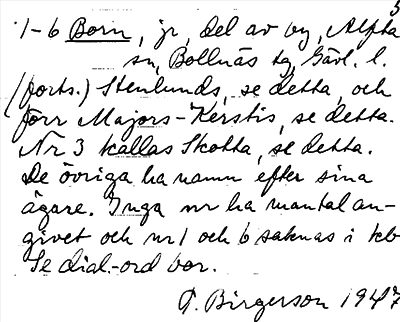 5
1-6 Born, jr, del av by, Alfta
sn, Bollnäs tg, Gävl. l.
(forts.) Stenlunds, se detta, och
förr Majors-Kerstis, se detta.
Nr 3 kallas Skotta, se detta.
De övriga ha namn efter sina
ägare. Inga nr ha mantal an-
givet och nr 1 och 6 saknas i kb
Se dial.-ord bor.
P. Birgerson 1947